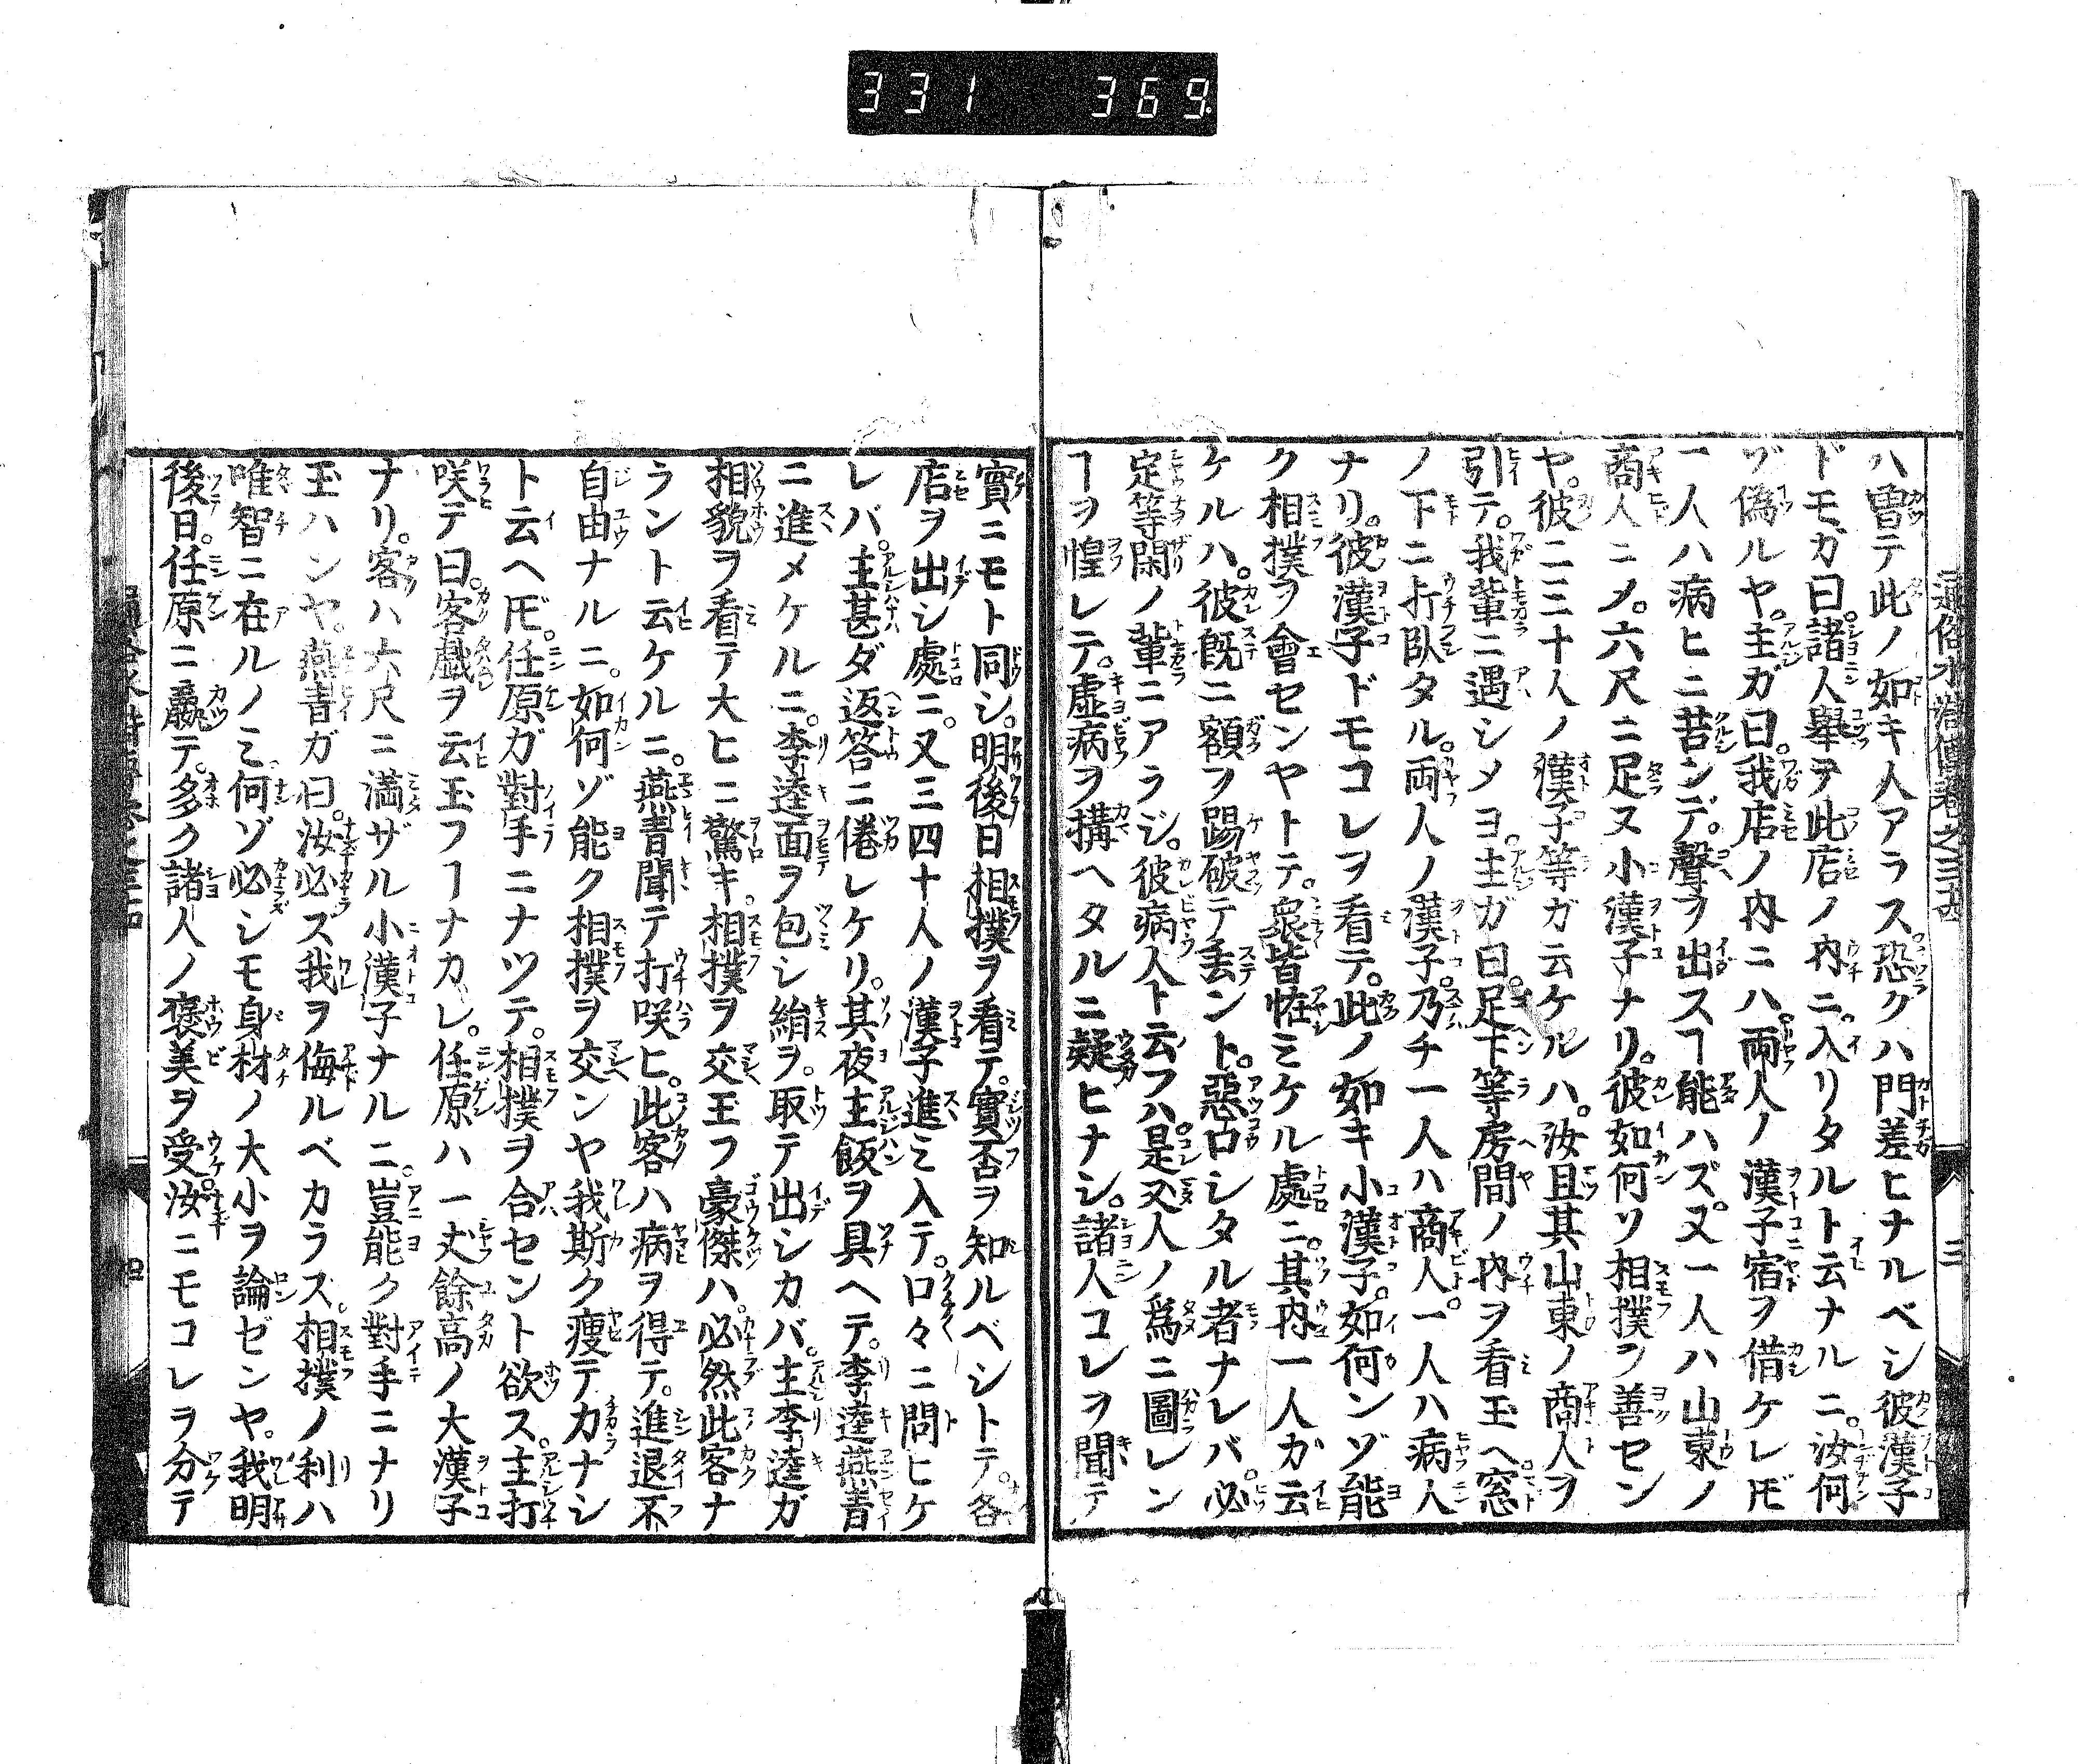 331 369
通俗水滸傳卷之三十四
三
ハ曽テ此ノ如キ人アラス恐クハ門差ヒナルベシ彼漢子
ドモガ曰。諸人舉テ此店ノ内ニ入リタルト云ナルニ。汝何
ゾ偽ルヤ。主ガ曰。我店ノ内ニハ。両人ノ漢子宿ヲ借ケレ𪜈
一人ハ病ヒニ苦ンデ。聲ヲ出スヿ能ハズ。又一人ハ山東ノ
商人ニメ。六尺ニ足ヌ小漢子ナリ。彼如何ソ相撲ヲ善セン
ヤ。彼二三十人ノ漢子等ガ云ケルハ。汝且其山東ノ商人ヲ
引テ。我輩ニ遇シメヨ。主ガ曰。足下等房間ノ内ヲ看玉ヘ窓
ノ下ニ打臥タル。両人ノ漢子。乃チ一人ハ商人。一人ハ病人
ナリ。彼漢子ドモコレヲ看テ。此ノ如キ小漢子。如何ンゾ能
ク相撲ヲ會センヤトテ。衆皆怪ミケル處ニ。其内一人カ云
ケルハ。彼既ニ額ヲ踢破テ丢ント。惡口シタル者ナレバ。必
定等閑ノ輩ニアラジ。彼病人ト云フハ。是又人ノ爲ニ圖レン
ヿヲ惶レテ。虚病ヲ搆ヘタルニ疑ヒナシ。諸人コレヲ聞テ
實ニモト同シ。明後日相撲ヲ看テ。實否ヲ知ルベシトテ。各
店ヲ出シ處ニ。又三四十人ノ漢子進ミ入テ。口々ニ問ヒケ
レバ。主甚ダ返答ニ倦レケリ。其夜主飯ヲ具ヘテ。李逵燕青
ニ進メケルニ。李逵面ヲ包シ絹ヲ。取テ出シカバ。主李逵ガ
相貌ヲ看テ大ヒニ驚キ。相撲ヲ交玉フ豪傑ハ。必然此客ナ
ラント云ケルニ。燕青聞テ打咲ヒ。此客ハ病ヲ得テ。進退不
自由ナルニ。如何ゾ能ク相撲ヲ交ンヤ我斯ク瘦テ力ナシ
ト云ヘ𪜈。任原ガ對手ニナツテ。相撲ヲ合セント欲ス。主打
咲テ曰。客戯ヲ云玉フヿナカレ。任原ハ一丈餘高ノ大漢子
ナリ。客ハ六尺ニ満ザル小漢子ナルニ。豈能ク對手ニナリ
玉ハンヤ。燕青ガ曰。汝必ズ我ヲ侮ルベカラス。相撲ノ利ハ
唯智ニ在ルノミ何ゾ必シモ身材ノ大小ヲ論ゼンヤ。我明
後日。任原ニ贏テ。多ク諸人ノ褒美ヲ受。汝ニモコレヲ分テ
四